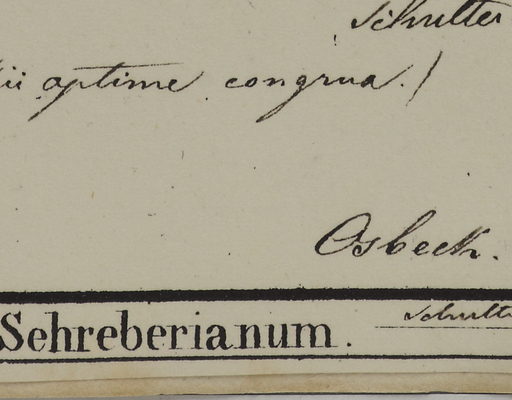 Schulter
ii optime congrua.)
Osbeck.
Sehreberianum.